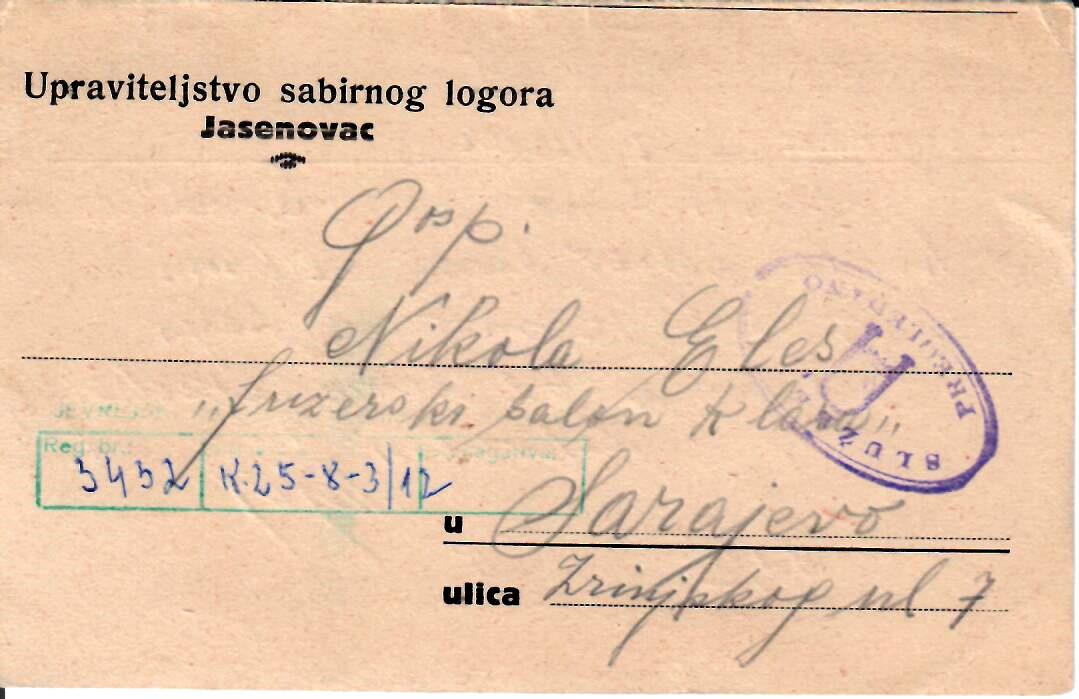 Upraviteljstvo sabirnog logora
Jasenovac
Gosp.
Nikola Eles
"frizerski salon Klara"
JEVREJSK
Reg. br.:
5452 K.25-8-3/12
u Sarajevo
ulica Zrinjskog ul 7
SLUŽ
PREGLEDANO